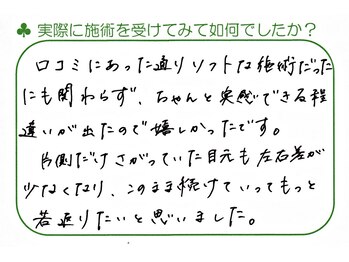 ♣ 実際に施術を受けてみて如何でしたか？
口コミにあった通りソフトな施術だった
にも関わらず、ちゃんと実感できる程
違いが出たので嬉しかったです。
片側だけさがっていた目元も左右差が
少なくなり、このまま続けていってもっと
若返りたいと思いました。